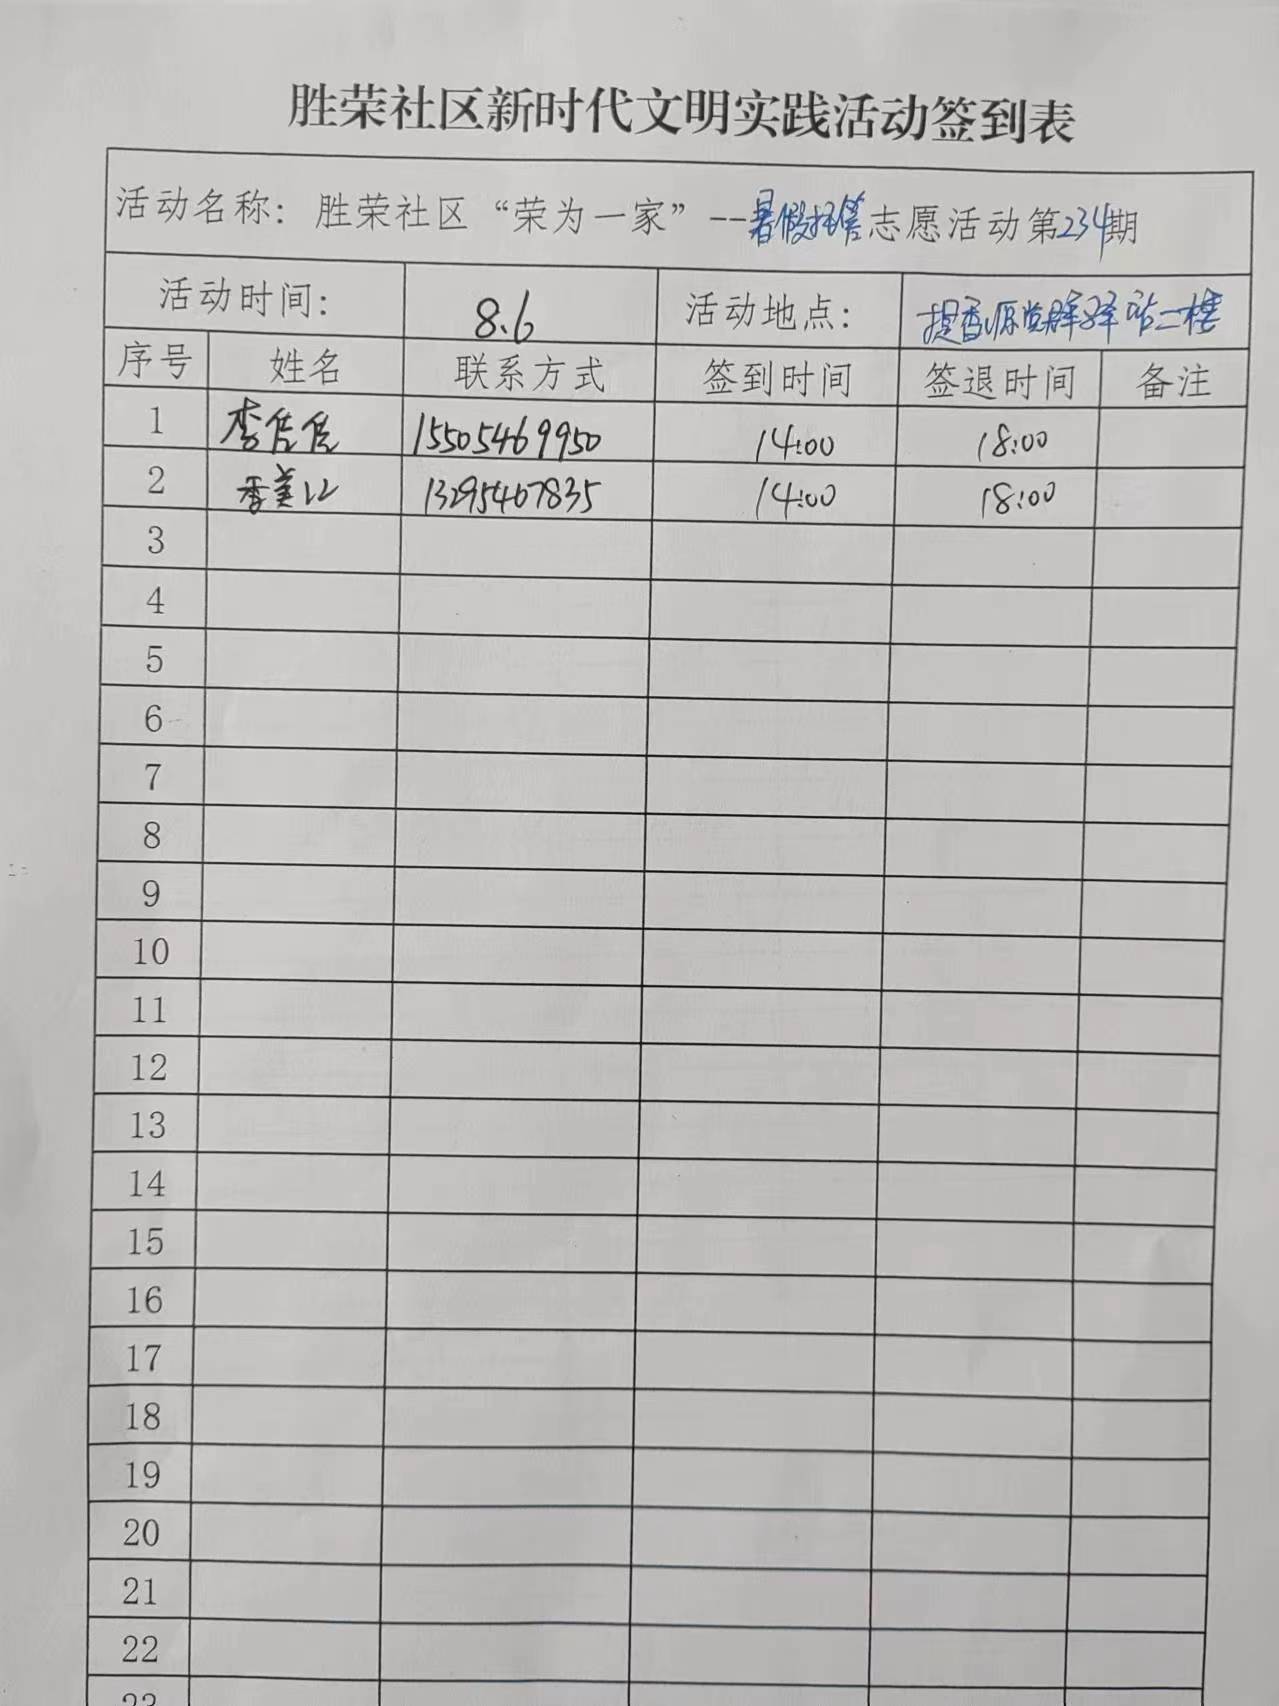 胜荣社区新时代文明实践活动签到表
活动名称：胜荣社区“荣为一家”--暑假托管志愿活动第234期
活动时间： 8.6 活动地点： 提香源党群驿站二楼
序号 姓名 联系方式 签到时间 签退时间 备注
1 李佳佳 15505469950 14:00 18:00
2 李美江 13295467835 14:00 18:00
3
4
5
6
7
8
9
10
11
12
13
14
15
16
17
18
19
20
21
22
23